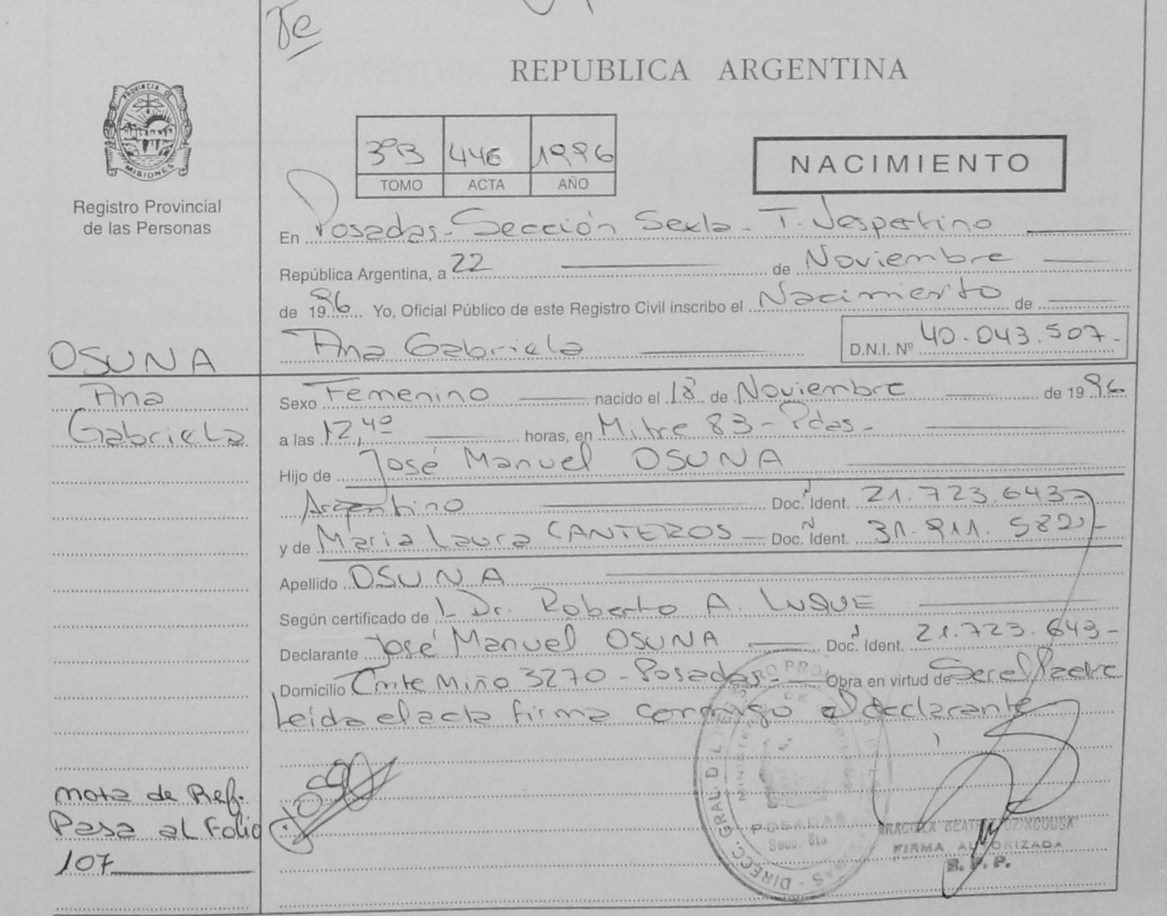 Te
REPUBLICA ARGENTINA
PROVINCIA DE MISIONES
Registro Provincial
de las Personas
3ºB 446 1996
TOMO ACTA AÑO
NACIMIENTO
En Posadas - Sección Sexta - T. Vespertino
República Argentina, a 22 de Noviembre
de 1996. Yo, Oficial Público de este Registro Civil inscribo el Nacimiento de
Ana Gabriela
D.N.I. Nº 40.043.507-
OSUNA
Ana
Gabriela
Sexo Femenino nacido el 18 de Noviembre de 1996
a las 12,40 horas, en Mitre 83 - Pdas -
Hijo de José Manuel OSUNA
Argentino Doc. Ident. 21.723.643-
y de Maria Laura CANTEROS - Doc. Ident. 31.911.582,-
Apellido OSUNA
Según certificado de L Dr. Roberto A. LUQUE
Declarante José Manuel OSUNA Doc. Ident. 21.723.643-
Domicilio Cmte Miño 3270 - Posadas - Obra en virtud de Ser el Padre
Leida el acta firma conmigo el declarante
nota de Ref.
Pasa al Folio
107
POSADAS
FIRMA AUTORIZADA